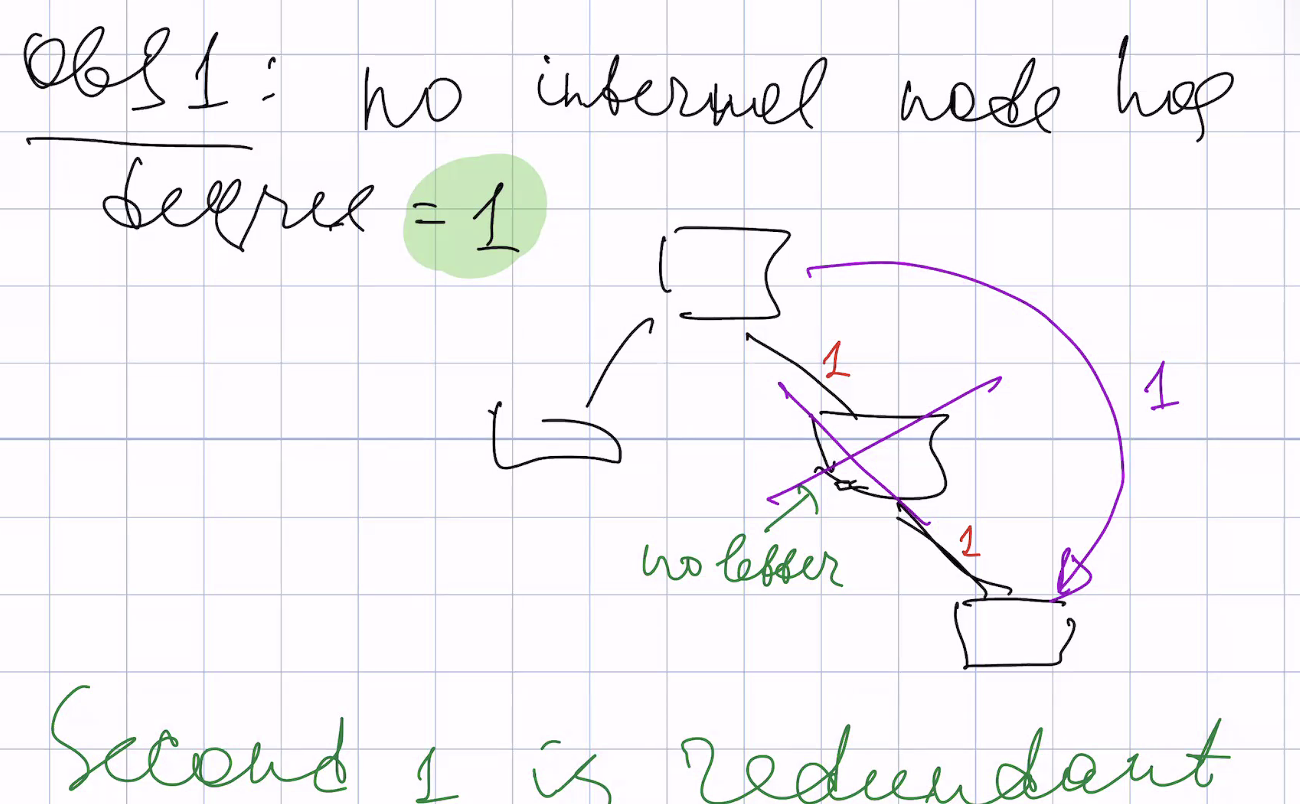 Obs 1: no internal node has
degree = 1
1
1
1
no letter
Second 1 is redundant